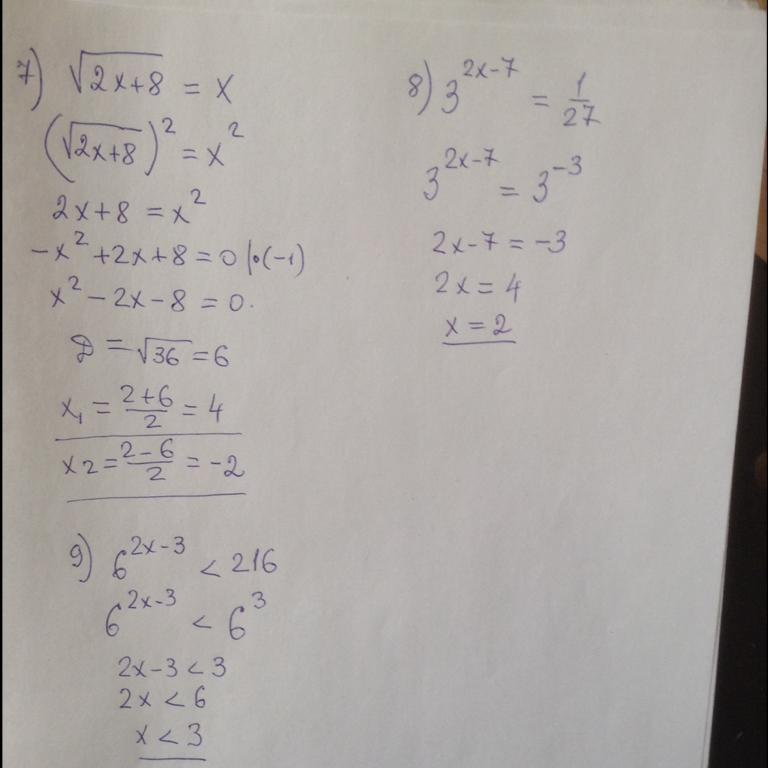 7) √(2x+8) = x
(√(2x+8))² = x²
2x+8 = x²
-x²+2x+8 = 0 |·(-1)
x²-2x-8 = 0.
D = √36 = 6
x₁ = (2+6)/2 = 4
x2 = (2-6)/2 = -2
8) 3^(2x-7) = 1/27
3^(2x-7) = 3^(-3)
2x-7 = -3
2x = 4
x = 2
9) 6^(2x-3) < 216
6^(2x-3) < 6³
2x-3 < 3
2x < 6
x < 3